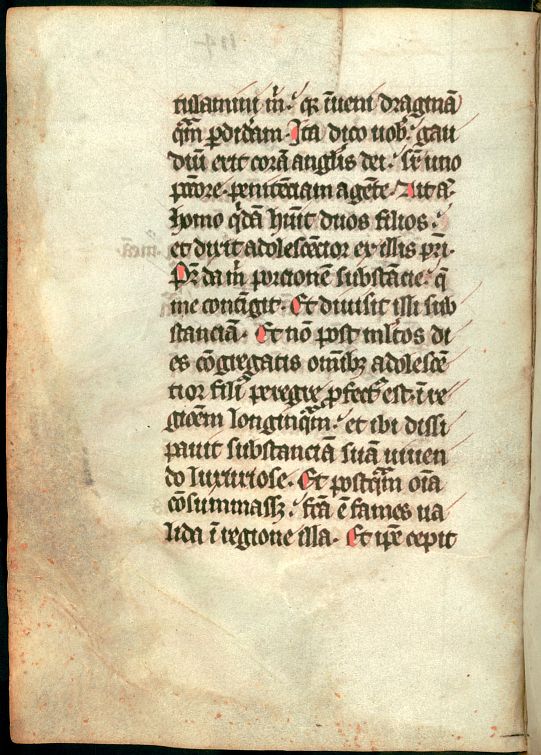 tulamini m̄. qꝛ īueni dragmā
qm̄ ꝑdidam. Ita dico uob. gau
diū erit corā anglīs dei. sr̄ uno
pctōre. penitēciam agēte. Uit a.
homo qdā hūit duos filios.
et dixit adolescēcior ex illis pr̄i.
Pr̄ da m̄ porcionē substācie. q̄
me contīgit. Et diuisit illi sub
stanciā. Et nō post ml̄tos di
es cōgregatis omībꝫ adolescē
tior fili ꝑegre ꝓfect est. ī re
gionēm longīnqm̄. et ibi dissi
pauit substanciā suā uiuen
do luxuriose. Et postqm̄ oīa
cōsummassꝫ. fcā ē fames ua
lida ī regione illa. Et ipē cepit